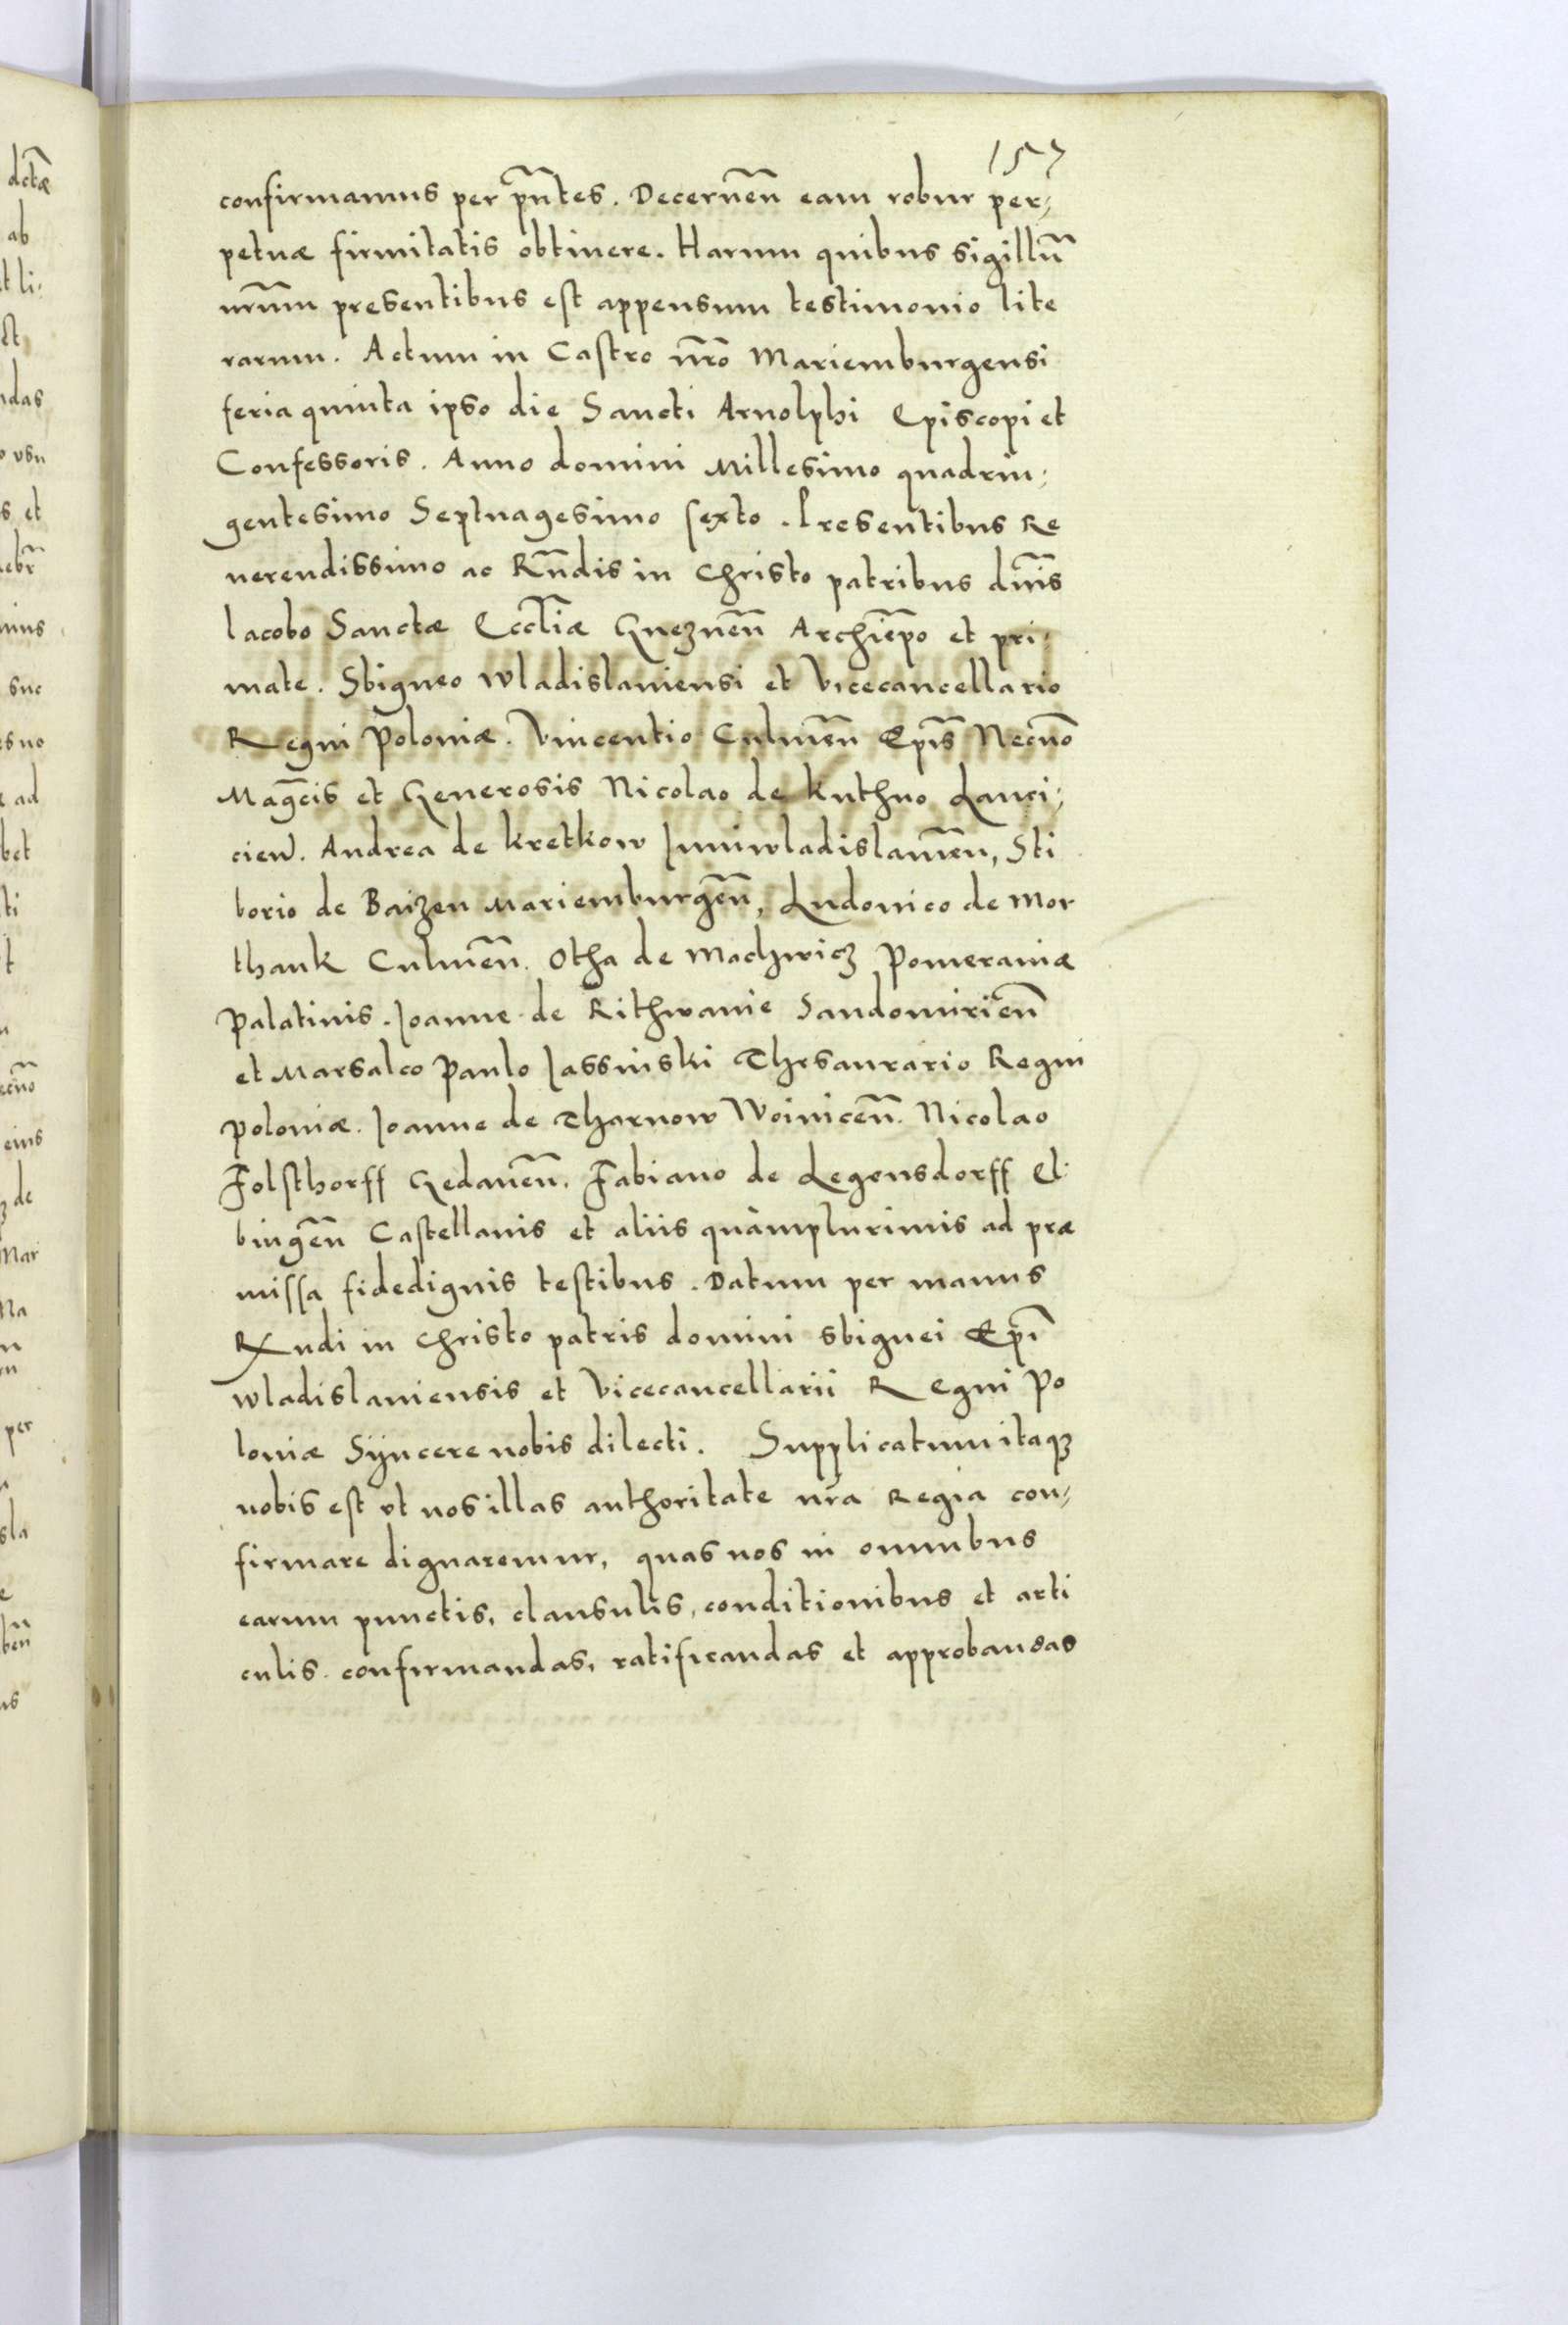 157
confirmamus per pn̄tes. Decernen̄ eam robur per⸗
petuæ firmitatis obtinere. Harum quibus sigillū
nr̄um presentibus est appensum testimonio lite
rarum. Actum in Castro nr̄o Mariemburgensi
feria quinta ipso die Sancti Arnolphi Episcopi et
Confessoris. Anno domini Millesimo quadrin⸗
gentesimo Septuagesimo sexto. Presentibus Re
uerendissimo ac Rn̄dis in Christo patribus dn̄is
Iacobo Sanctæ Eccl̄iæ Gneznen̄ Archiep̄o et pri⸗
mate. Sbigneo wladislauiensi et Vicecancellario
Regni Poloniæ. Vincentio Culmen̄ Ep̄is Necnō
Maḡcis et Generosis Nicolao de Kuthno Lanci⸗
cien̄. Andrea de kretkow Iuniwladislauien̄, Sti
borio de Baizen Mariemburgen̄, Ludouico de Mor
thank Culmen̄. Otha de Machwicz Pomeraniæ
Palatinis. Ioanne de Rithwanie Sandomirien̄
et Marsalco Paulo Iassinski Thesaurario Regni
Poloniæ. Ioanne de Tharnow Woinicen̄. Nicolao
Folsthorff Gedanen̄. Fabiano de Legensdorff El⸗
bingen̄ Castellanis et aliis quàmplurimis ad præ
missa fidedignis testibus. Datum per manus
Rndi in Christo patris domini sbignei Ep̄i
wladislauiensis et Vicecancellarii Regni Po
loniæ Syncere nobis dilecti. Supplicatum itaqꝫ
nobis est vt nos illas authoritate nr̄a Regia con⸗
firmare dignaremur, quas nos in omnibus
earum punctis, clausulis, conditionibus et arti
culis confirmandas, ratificandas et approbandas